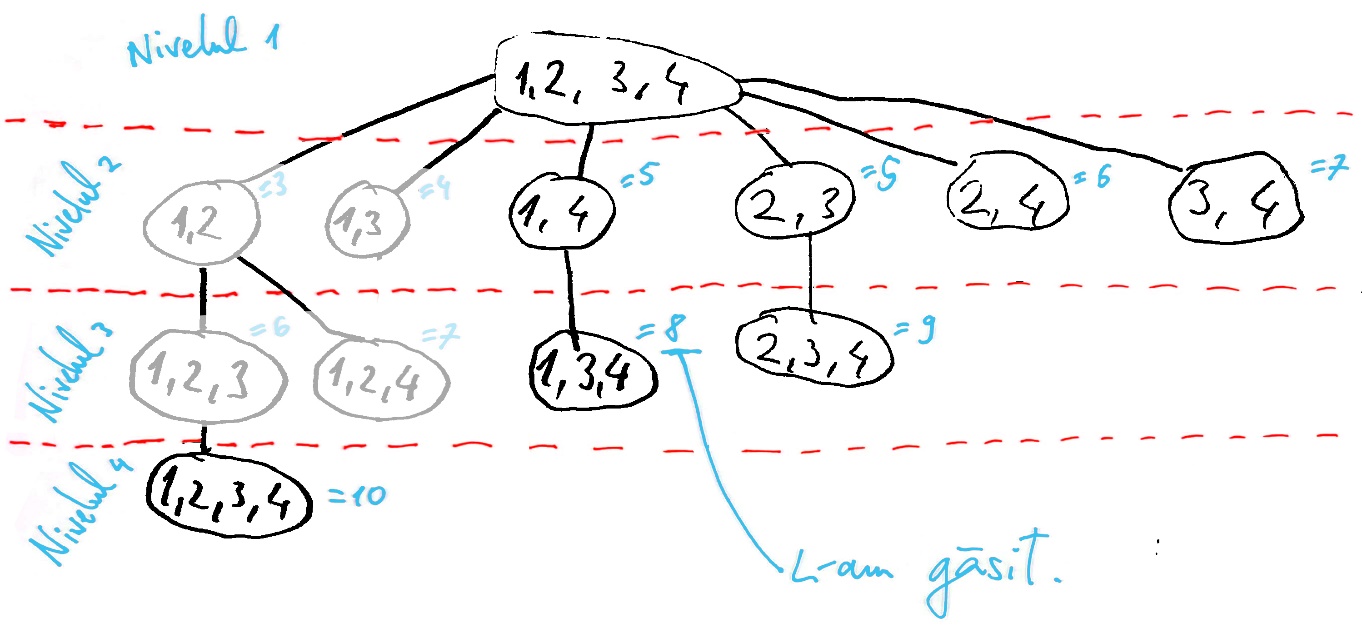 Nivelul 1
1,2, 3,4
Nivelul 2
1,2 =3
1,3 =4
1,4 =5
2,3 =5
2,4 =6
3,4 =7
Nivelul 3
1,2,3 =6
1,2,4 =7
1,3,4 =8
2,3,4 =9
Nivelul 4
1,2,3,4 =10
L-am găsit.